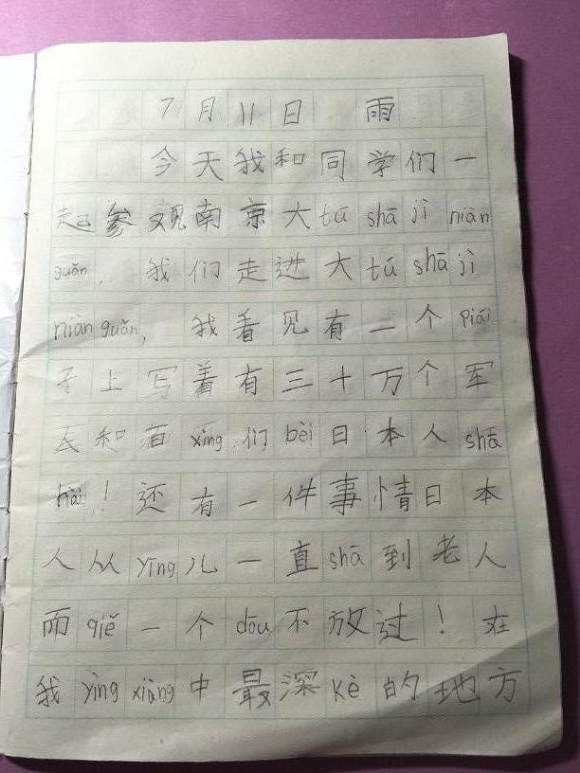 7月11日 雨
今天我和同学们一
起参观南京大tú shā jì niàn
guǎn，我们走进大tú shā jì
niàn guǎn，我看见有一个pái
子上写着有三十万个军
民和百xìng们bèi日本人shā
hài！还有一件事情日本
人从yīng儿一直shā到老人
而qiě一个dōu不放过！在
我yìng xiàng中最深kè的地方